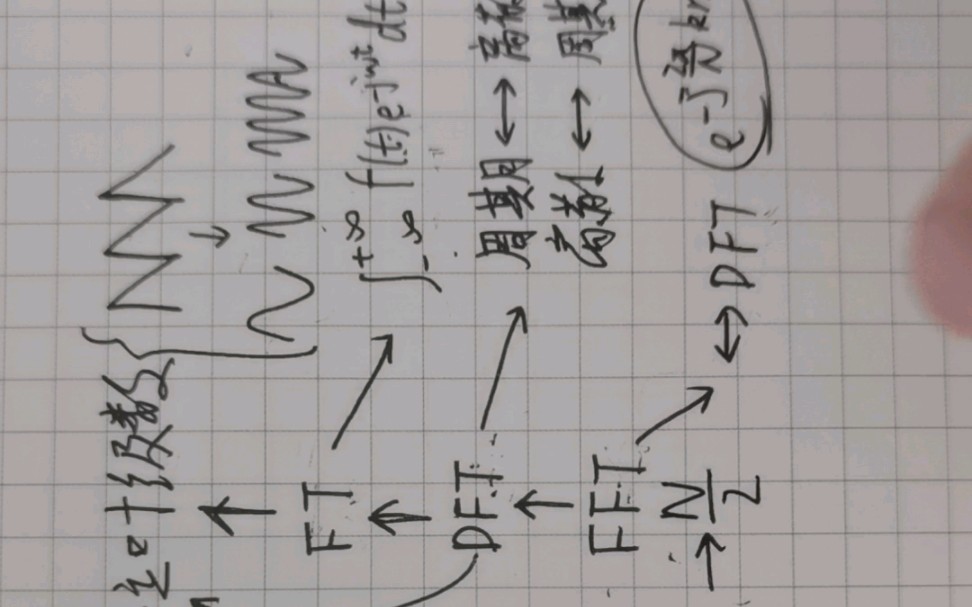 叶级数
FT
∫_{-∞}^{+∞} f(t)e^{-jωt}dt
DFT
周期 ↔ 离散
离散 ↔ 周期
FFT ↔ DFT
e^{-j\frac{2π}{N}kn}
→ \frac{N}{2}